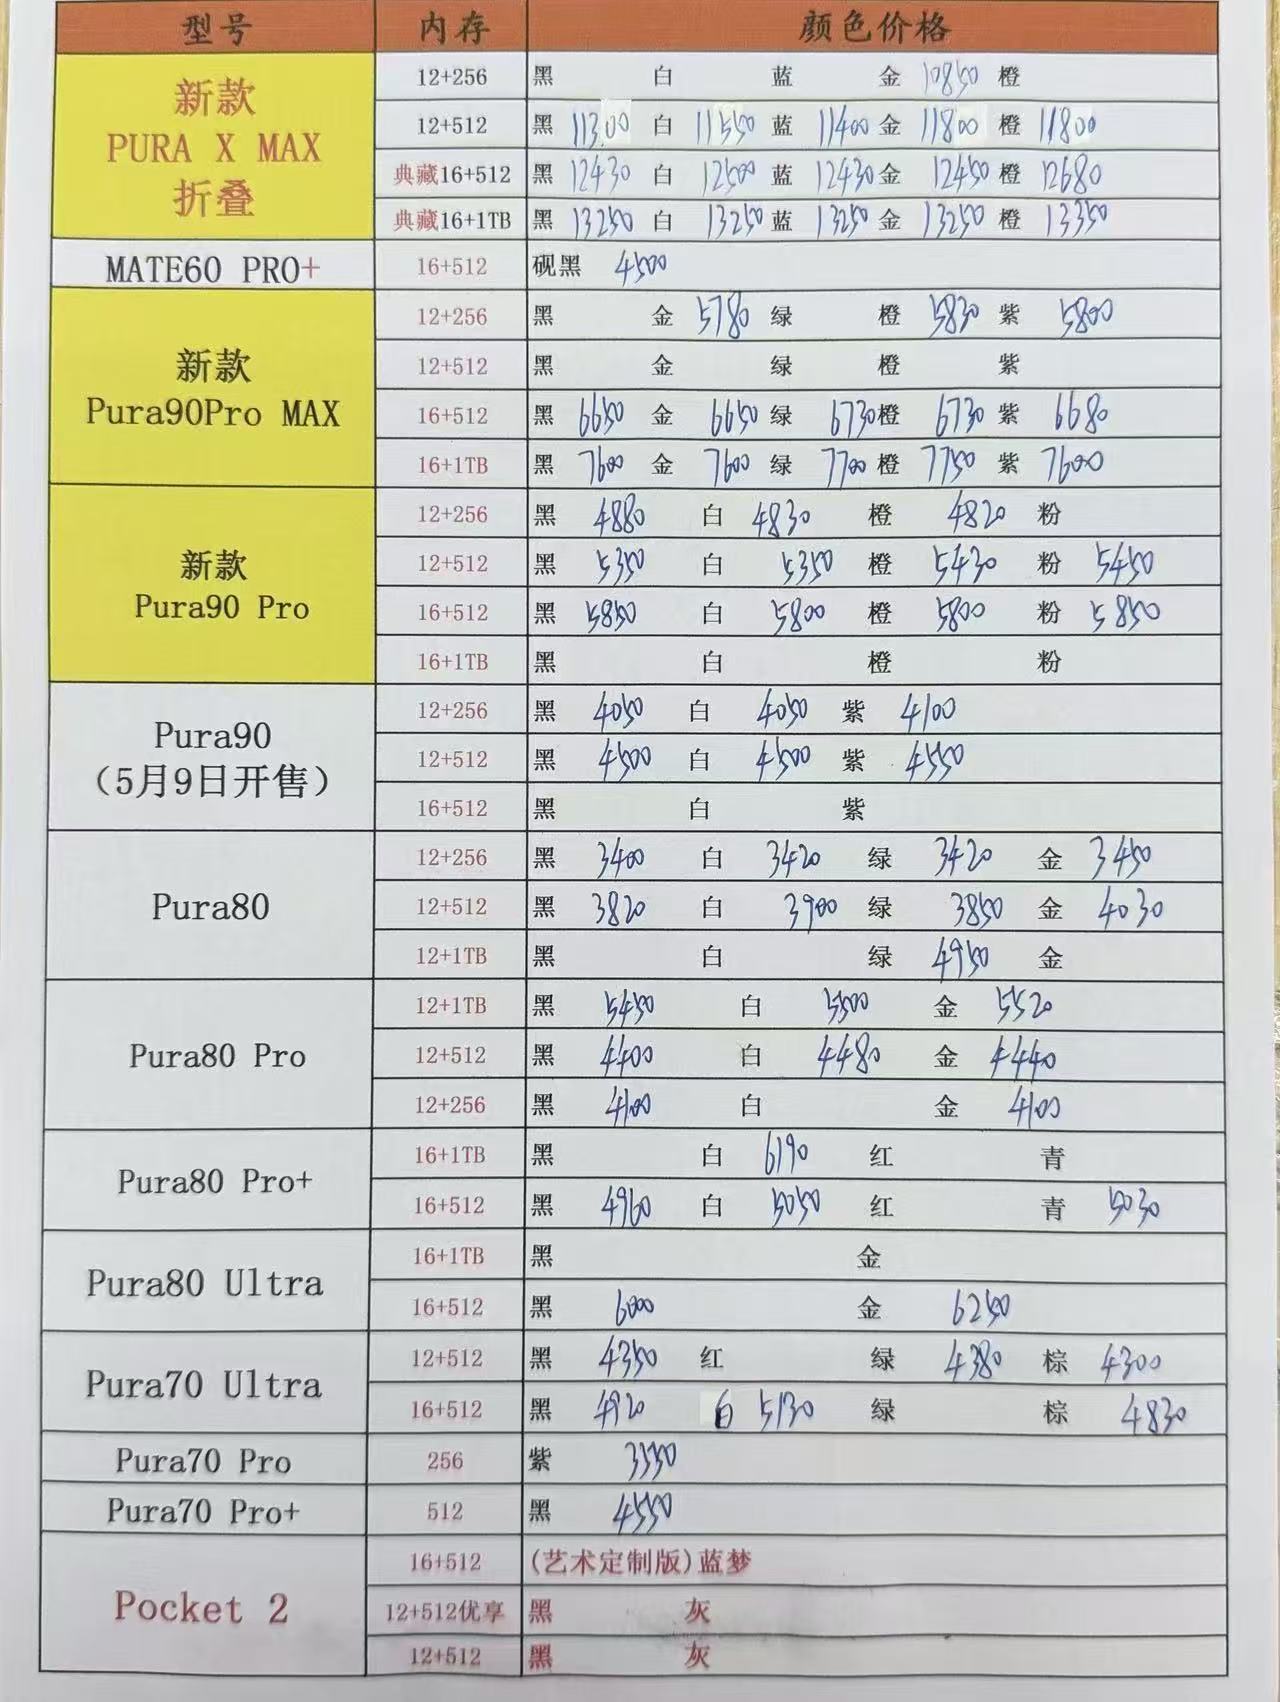 型号 内存 颜色价格
新款 PURA X MAX 折叠
12+256 黑 白 蓝 金 10850 橙
12+512 黑 11300 白 11550 蓝 11400 金 11800 橙 11800
典藏16+512 黑 12430 白 12500 蓝 12430 金 12450 橙 12680
典藏16+1TB 黑 13250 白 13250 蓝 13250 金 13250 橙 13350
MATE60 PRO+ 16+512 砚黑 4500
新款 Pura90Pro MAX
12+256 黑 金 5780 绿 橙 5830 紫 5800
12+512 黑 金 绿 橙 紫
16+512 黑 6650 金 6650 绿 6730 橙 6730 紫 6680
16+1TB 黑 7600 金 7600 绿 7700 橙 7750 紫 7600
新款 Pura90 Pro
12+256 黑 4880 白 4830 橙 4820 粉
12+512 黑 5350 白 5350 橙 5430 粉 5450
16+512 黑 5850 白 5800 橙 5800 粉 5850
16+1TB 黑 白 橙 粉
Pura90 （5月9日开售）
12+256 黑 4050 白 4050 紫 4100
12+512 黑 4500 白 4500 紫 4550
16+512 黑 白 紫
Pura80
12+256 黑 3400 白 3420 绿 3420 金 3450
12+512 黑 3820 白 3900 绿 3850 金 4030
12+1TB 黑 白 绿 4950 金
Pura80 Pro
12+1TB 黑 5450 白 5500 金 5520
12+512 黑 4400 白 4480 金 4440
12+256 黑 4100 白 金 4100
Pura80 Pro+
16+1TB 黑 白 6190 红 青
16+512 黑 4960 白 5050 红 青 5030
Pura80 Ultra
16+1TB 黑 金
16+512 黑 6000 金 6250
Pura70 Ultra
12+512 黑 4350 红 绿 4380 棕 4300
16+512 黑 4920 白 5130 绿 棕 4830
Pura70 Pro 256 紫 3550
Pura70 Pro+ 512 黑 4550
Pocket 2
16+512 (艺术定制版)蓝梦
12+512优享 黑 灰
12+512 黑 灰